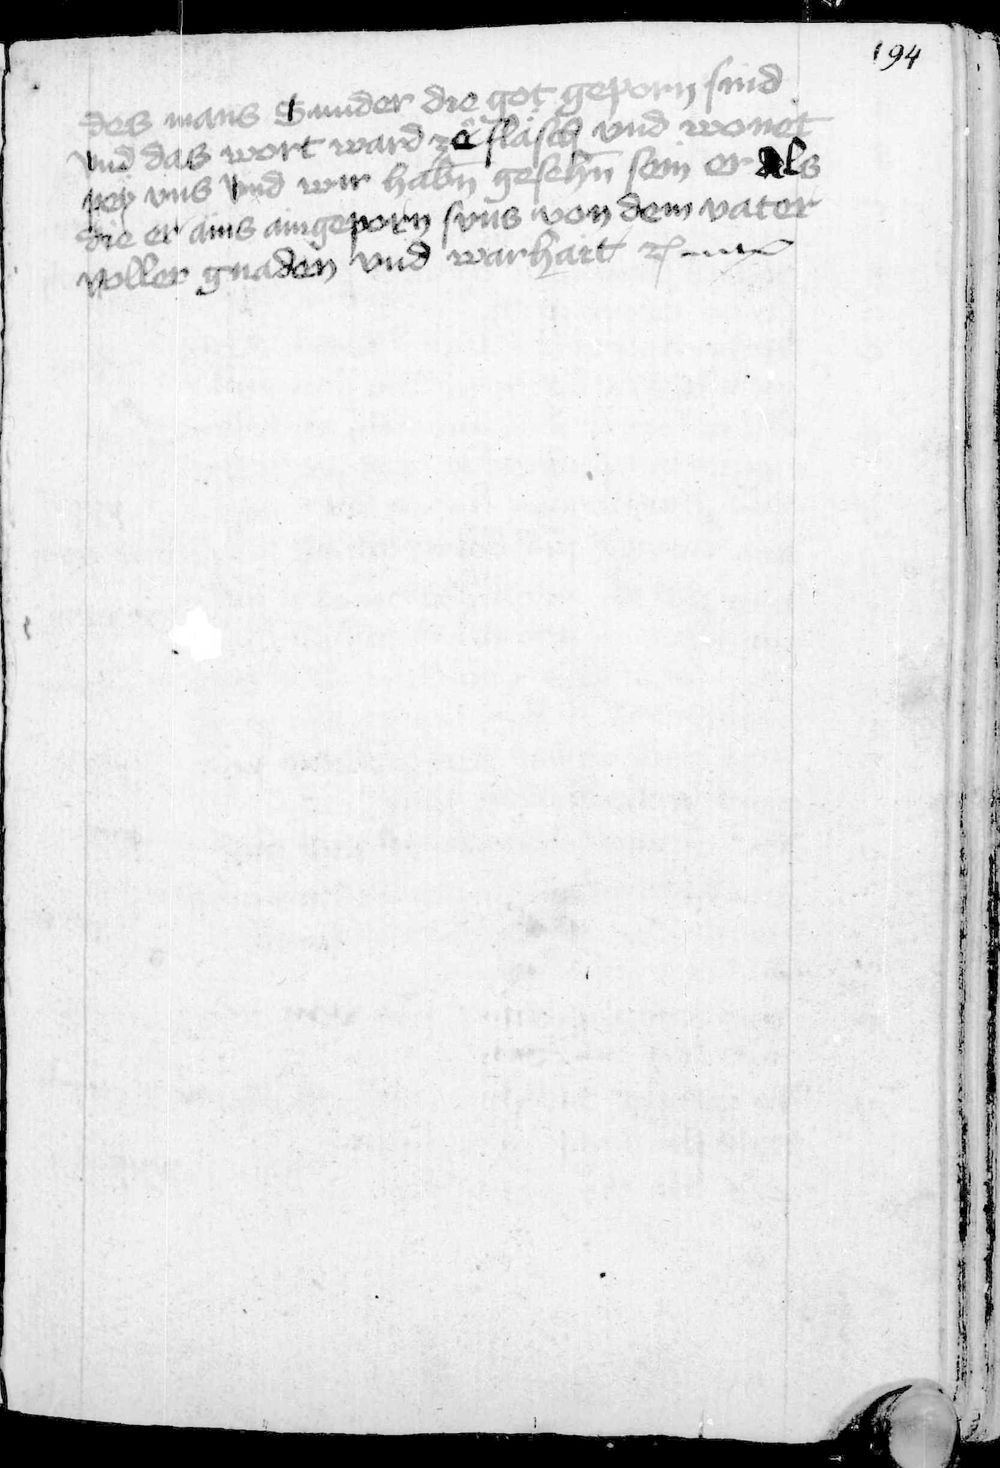 194
des mans Sunder die got geporn sind
Vnd das wort ward zů fläsch vnd wonet
pey vns Vnd wir habn̄ gesehn̄ sein er als
die er ains aingeporn suns von dem vater
voller gnaden vnd warhait